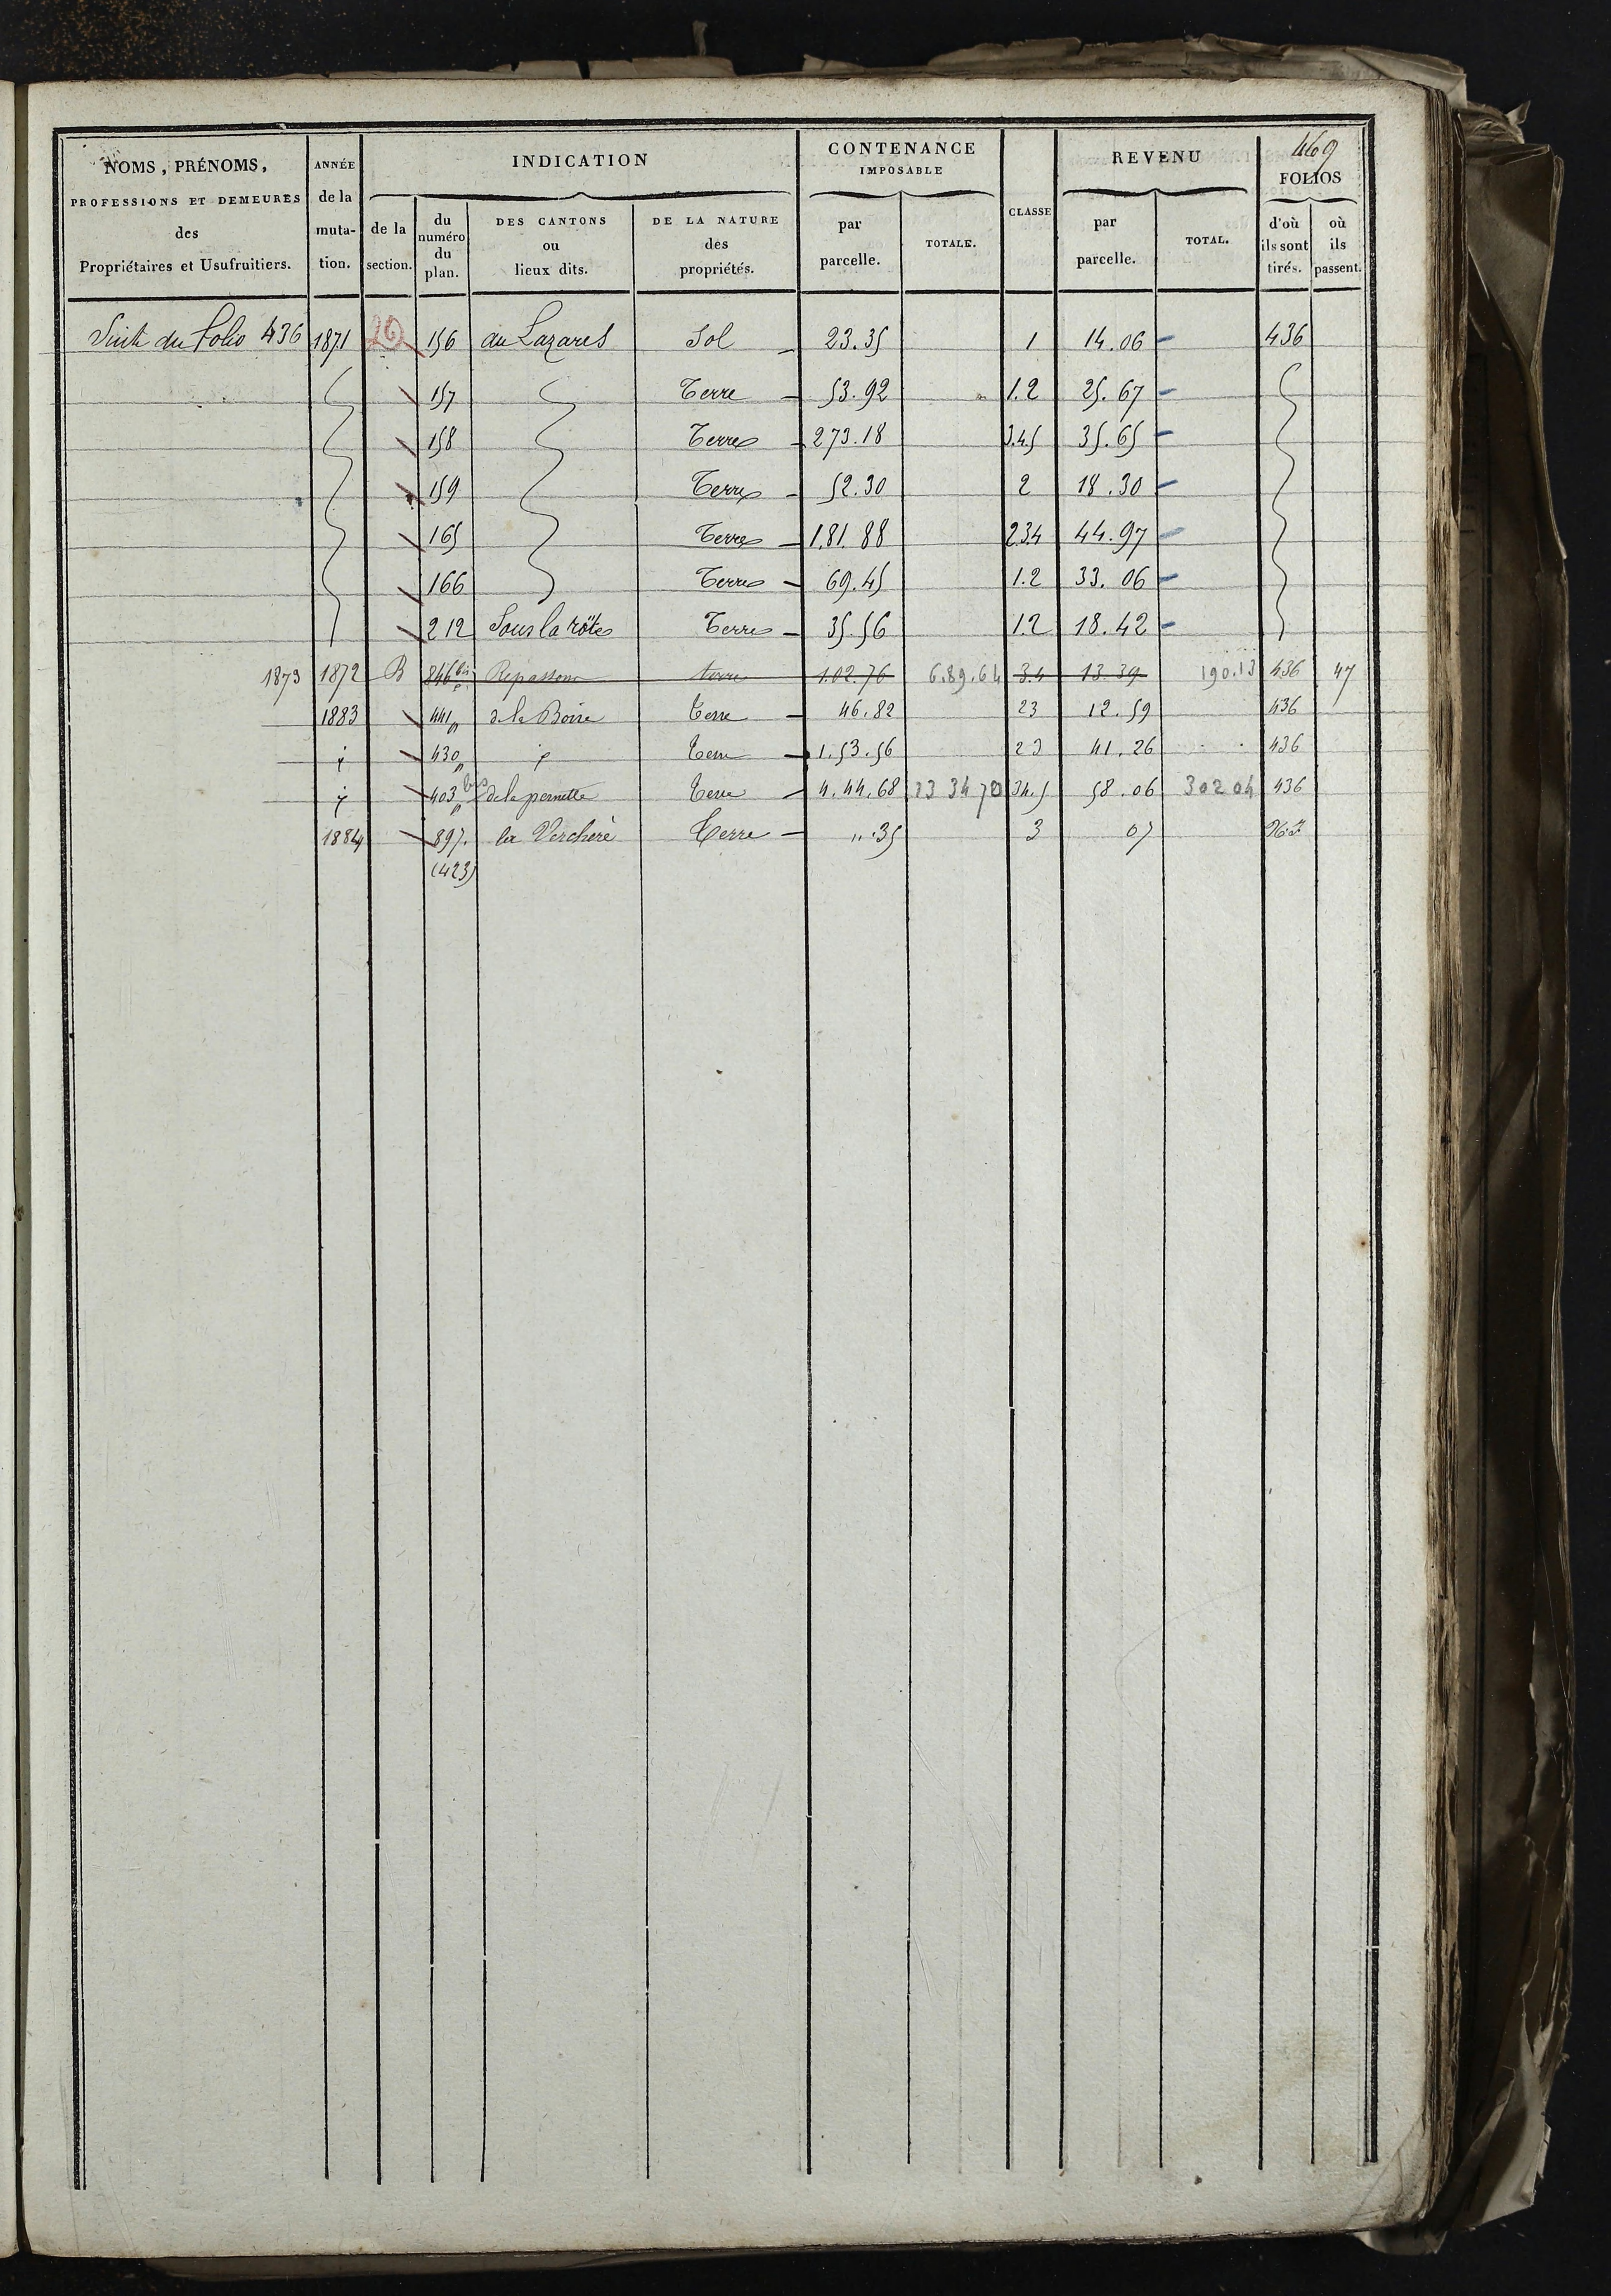 469
NOMS, PRÉNOMS, PROFESSIONS ET DEMEURES des Propriétaires et Usufruitiers.
ANNÉE de la mutation.
INDICATION
de la section.
du numéro du plan.
DES CANTONS ou lieux dits.
DE LA NATURE des propriétés.
CONTENANCE IMPOSABLE
par parcelle.
TOTALE.
CLASSE
REVENU
par parcelle.
TOTAL.
FOLIOS
d'où ils sont tirés.
où ils passent.
Suite du Folio 436 1871 156 au Lazaret Sol 23.35 1 14.06 436
157 Terre 53.92 1.2 25.67
158 Terre 273.18 3.4.5 35.65
159 Terre 52.30 2 18.30
165 Terre 1.81.88 234 44.97
166 Terre 69.45 1.2 33.06
212 Sous la Terre 35.56 1.2 18.42
1873 1872 B 846 bis p. terre 1.02.76 6.89.64 3.4 13.39 190.13 436 47
1883 441p de la Boire terre 46.82 23 12.59 436
430p terre 1.53.56 23 41.26 436
403p bis de la pernette terre 4.44.68 13 34 70 34.5 58.06 302 04 436
1884 897. la Verchere Terre ".35 3 07
(423)